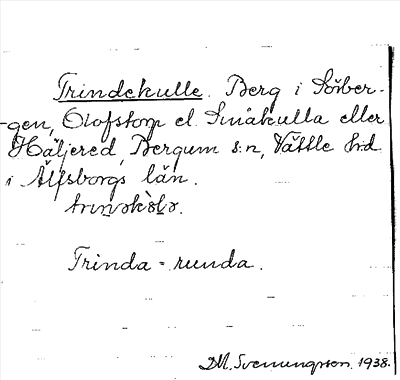 Trindekulle. Berg i Sörber-
gen, Olofstorp el. Småkulla eller
Häljered, Bergum s:n, Vättle h:d
i Älfsborgs län.
Trinda = runda.
D.M. Svenungsson. 1938.